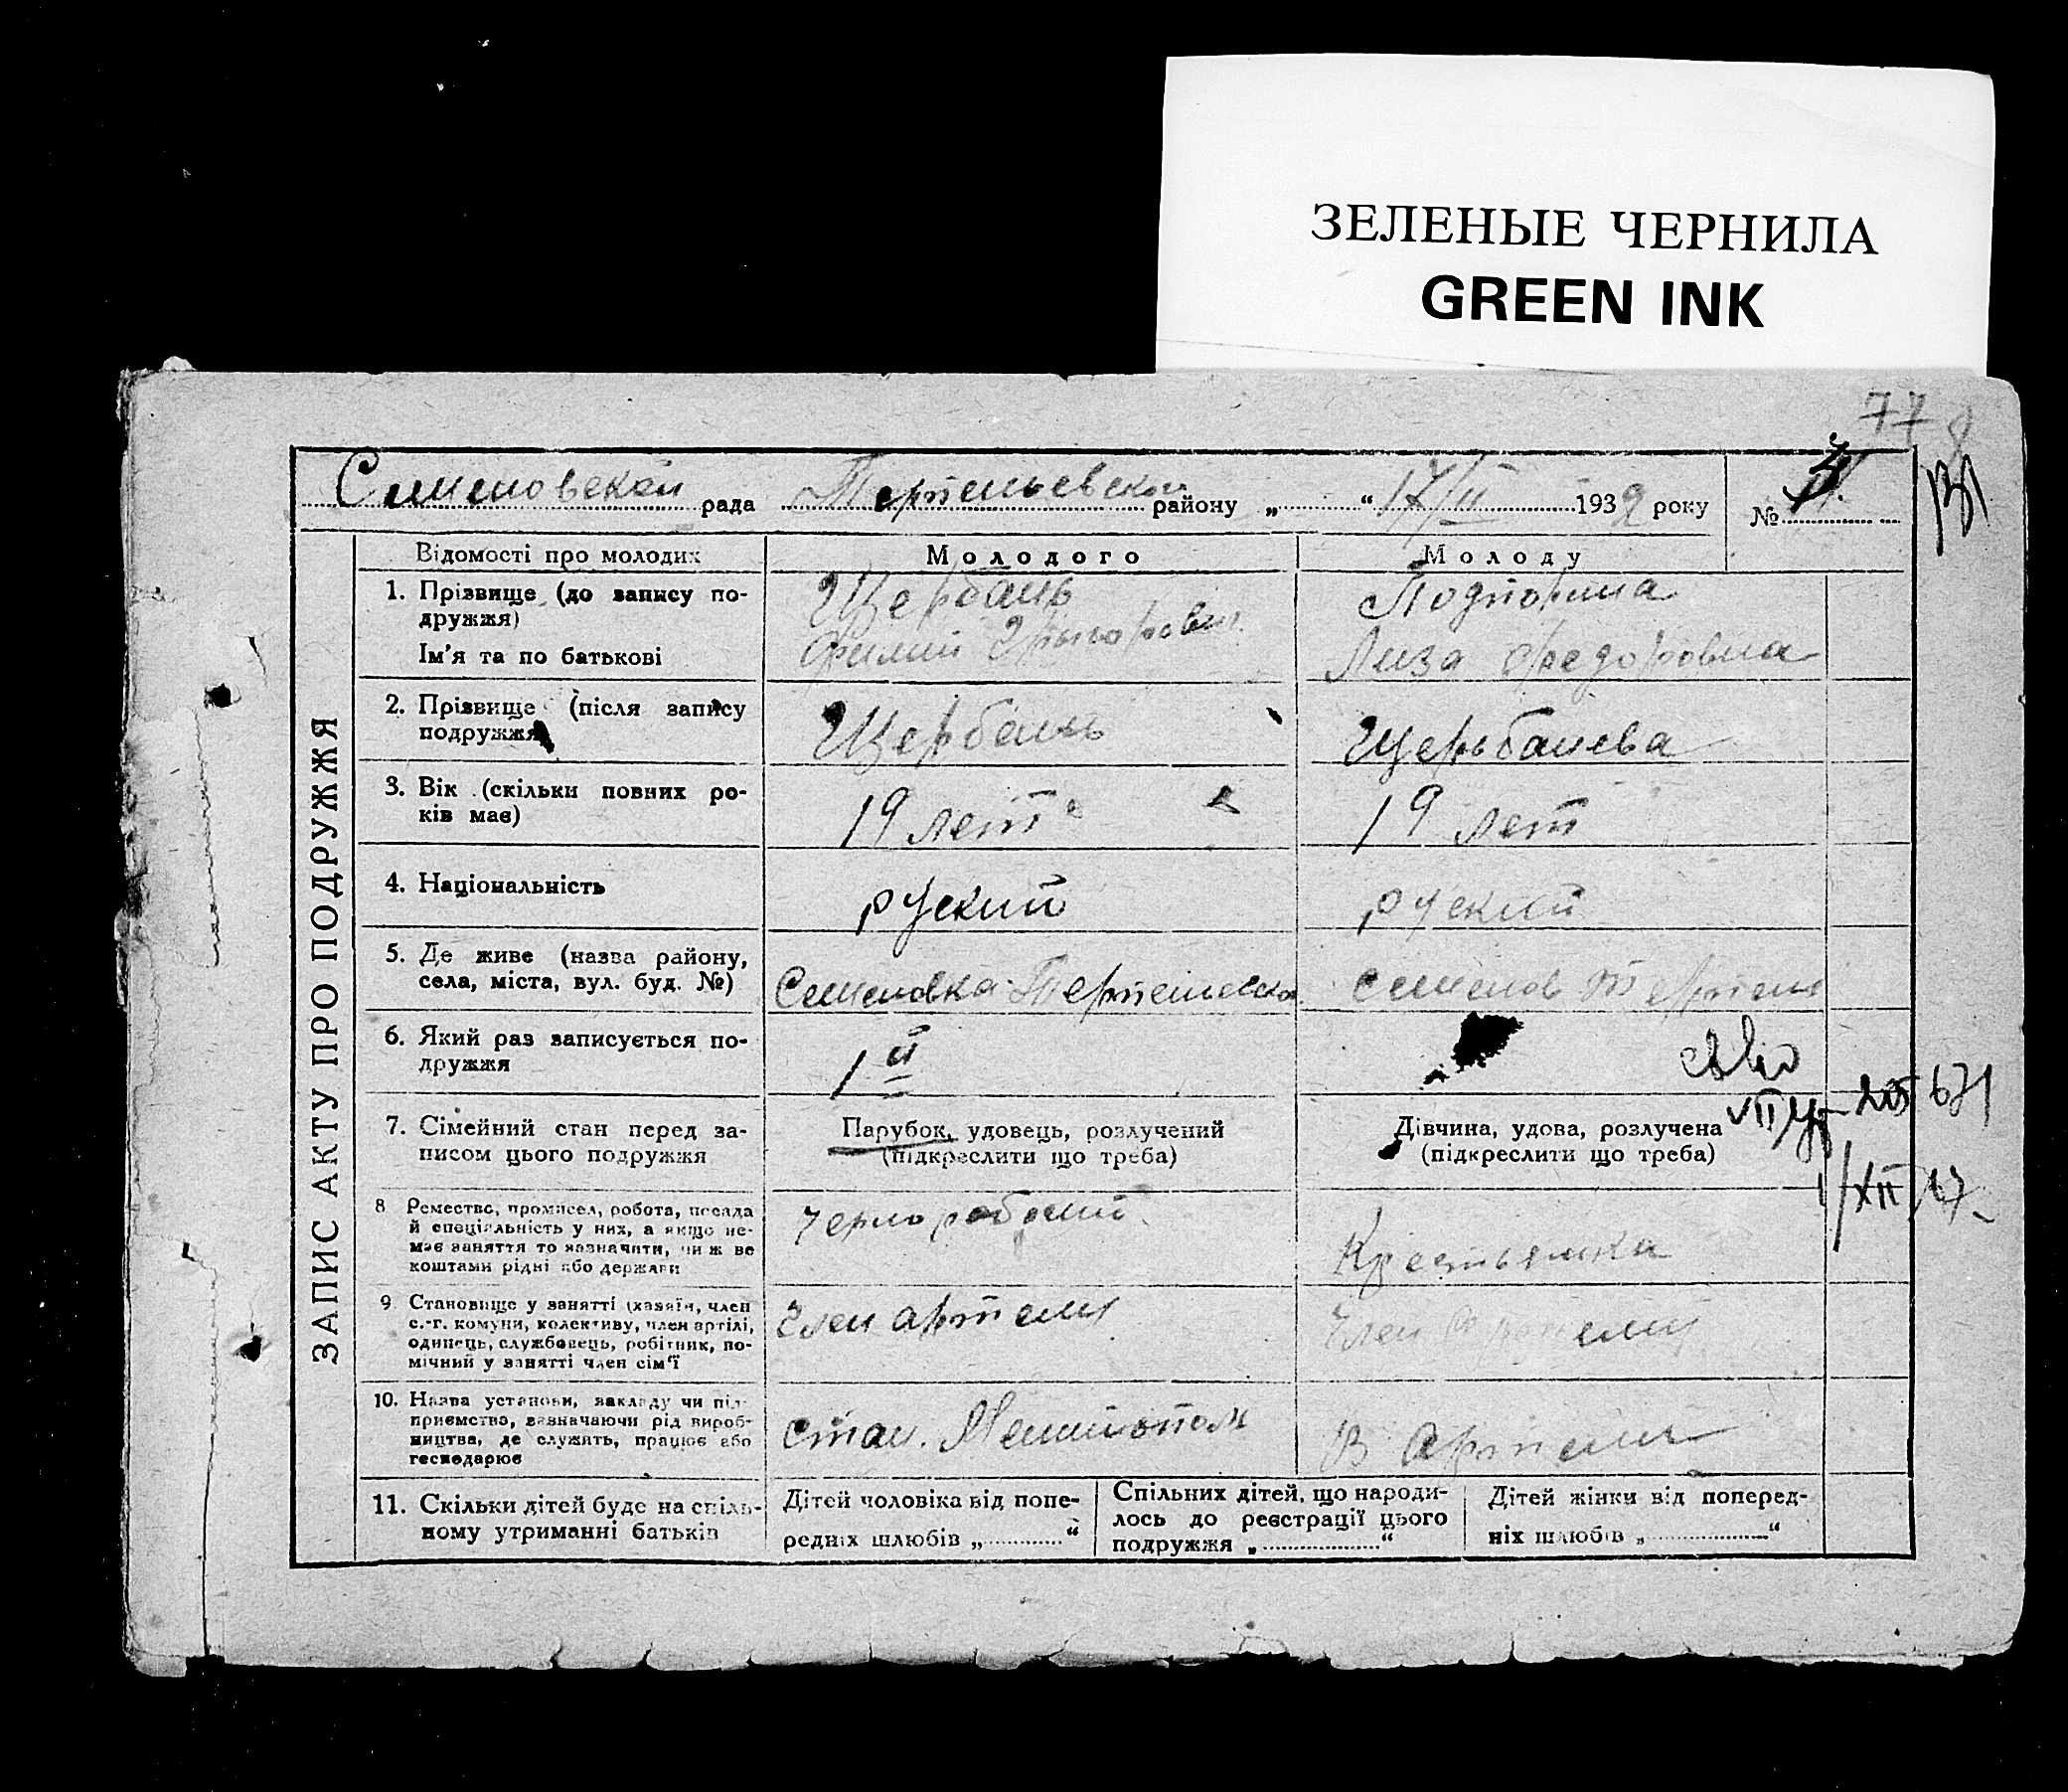 ЗЕЛЕНЫЕ ЧЕРНИЛА
GREEN INK
77
Семеновской рада Терпеньевской району „ “ 17/II 1932 року №
ЗАПИС АКТУ ПРО ПОДРУЖЖЯ
Відомості про молодих
Молодого
Молоду
1. Прізвище (до запису по-
дружжя)
Ім'я та по батькові
Щербань
Филип Григорович
Подторина
Лиза Федоровна
2. Прізвище (після запису
подружжя
Щербань
Щербанева
3. Вік (скільки повних ро-
ків має)
19 лет
19 лет
4. Національність
руский
руский
5. Де живе (назва району,
села, міста, вул. буд. №)
Семеновка Терпеньевска
Семенов Терпен
6. Який раз записується по-
дружжя
1й
7. Сімейний стан перед за-
писом цього подружжя
Парубок, удовець, розлучений
(підкреслити що треба)
Дівчина, удова, розлучена
(підкреслити що треба)
8 Ремество, промисел, робота, посада
й спеціальність у них, а якщо не-
має заняття то зазначити, чи ж ве
коштами рідні або держави
Чернорабочий
Крестьянка
9 Становище у занятті (хазяїн, член
с.-г. комуни, колективу, член артілі,
одинець, службовець, робітник, по-
мічний у занятті член сім'ї
Член артели
Член артели
10. Назва установи, закладу чи під-
приємства, зазначаючи рід вироб-
ництва, де служить, працює або
господарює
стан. Мелитополь
В Артели
11. Скільки дітей буде на спіль-
ному утриманні батьків
Дітей чоловіка від попе-
редніх шлюбів „ “
Спільних дітей, що народи-
лось до реєстрації цього
подружжя „ “
Дітей жінки від поперед-
ніх шлюбів „ “